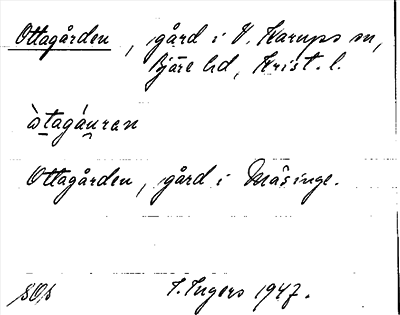 Ottagården, gård i V. Karups sn,
Bjäre hd, Krist. l.
àtagáuran
Ottagården, gård i Mäsinge.
I. Ingers 1947.